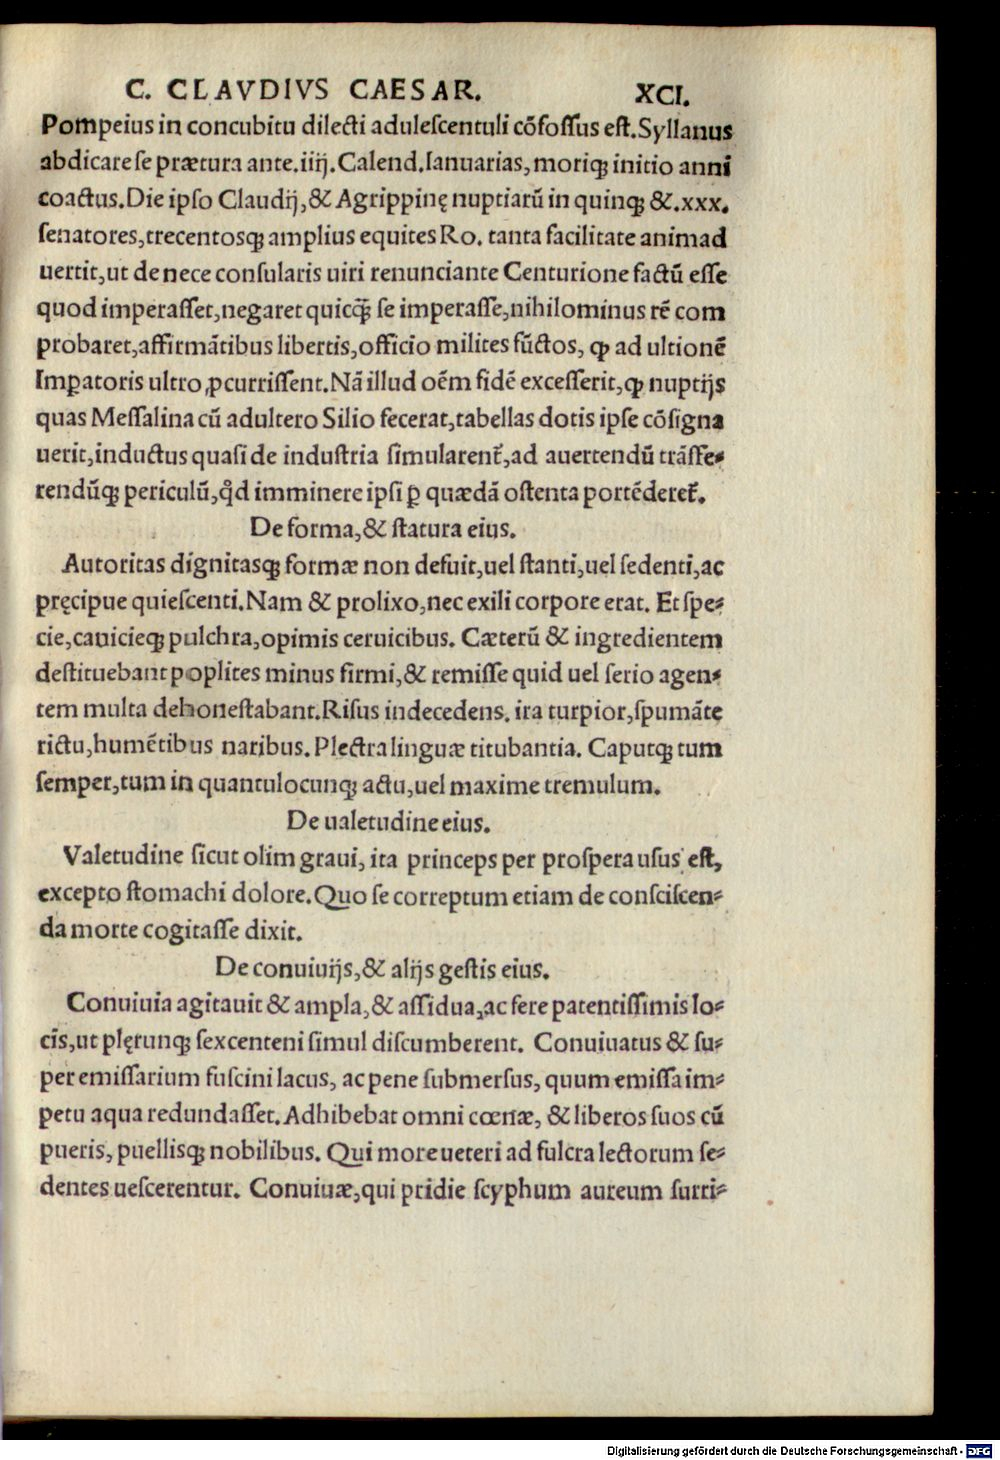 C. CLAVDIVS CAESAR. XCI.
Pompeius in concubitu dilecti adulescentuli cōfossus est. Syllanus
abdicare se prætura ante.iiij.Calend.Ianuarias, moriqꝫ initio anni
coactus. Die ipso Claudij, & Agrippinę nuptiarū in quinqꝫ &.xxx.
senatores, trecentosqꝫ amplius equites Ro. tanta facilitate animad
uertit, ut de nece consularis uiri renunciante Centurione factū esse
quod imperasset, negaret quicq̃ se imperasse, nihilominus rē com
probaret, affirmātibus libertis, officio milites fūctos, ꝙ ad ultionē
Imꝑatoris ultro ꝓcurrissent. Nā illud oēm fidē excesserit, ꝙ nuptijs
quas Messalina cū adultero Silio fecerat, tabellas dotis ipse cōsigna
uerit, inductus quasi de industria simularent᷑, ad auertendū trāsfe⸗
rendūqꝫ periculū, qđ imminere ipsi ꝑ quædā ostenta portēderet᷑.
De forma, & statura eius.
Autoritas dignitasqꝫ formæ non defuit, uel stanti, uel sedenti, ac
pręcipue quiescenti. Nam & prolixo, nec exili corpore erat. Et spe⸗
cie, canicieqꝫ pulchra, opimis ceruicibus. Cæterū & ingredientem
destituebant poplites minus firmi, & remisse quid uel serio agen⸗
tem multa dehonestabant. Risus indecedens. ira turpior, spumāte
rictu, humētibus naribus. Plectra linguæ titubantia. Caputqꝫ tum
semper, tum in quantulocunqꝫ actu, uel maxime tremulum.
De ualetudine eius.
Valetudine sicut olim graui, ita princeps per prospera usus est,
excepto stomachi dolore. Quo se correptum etiam de consciscen⸗
da morte cogitasse dixit.
De conuiuijs, & alijs gestis eius.
Conuiuia agitauit & ampla, & assidua, ac fere patentissimis lo⸗
cis, ut plęrunqꝫ sexcenteni simul discumberent. Conuiuatus & su⸗
per emissarium fuscini lacus, ac pene submersus, quum emissa im⸗
petu aqua redundasset. Adhibebat omni cœnæ, & liberos suos cū
pueris, puellisqꝫ nobilibus. Qui more ueteri ad fulcra lectorum se⸗
dentes uescerentur. Conuiuæ, qui pridie scyphum aureum surri⸗
Digitalisierung gefördert durch die Deutsche Forschungsgemeinschaft - DFG